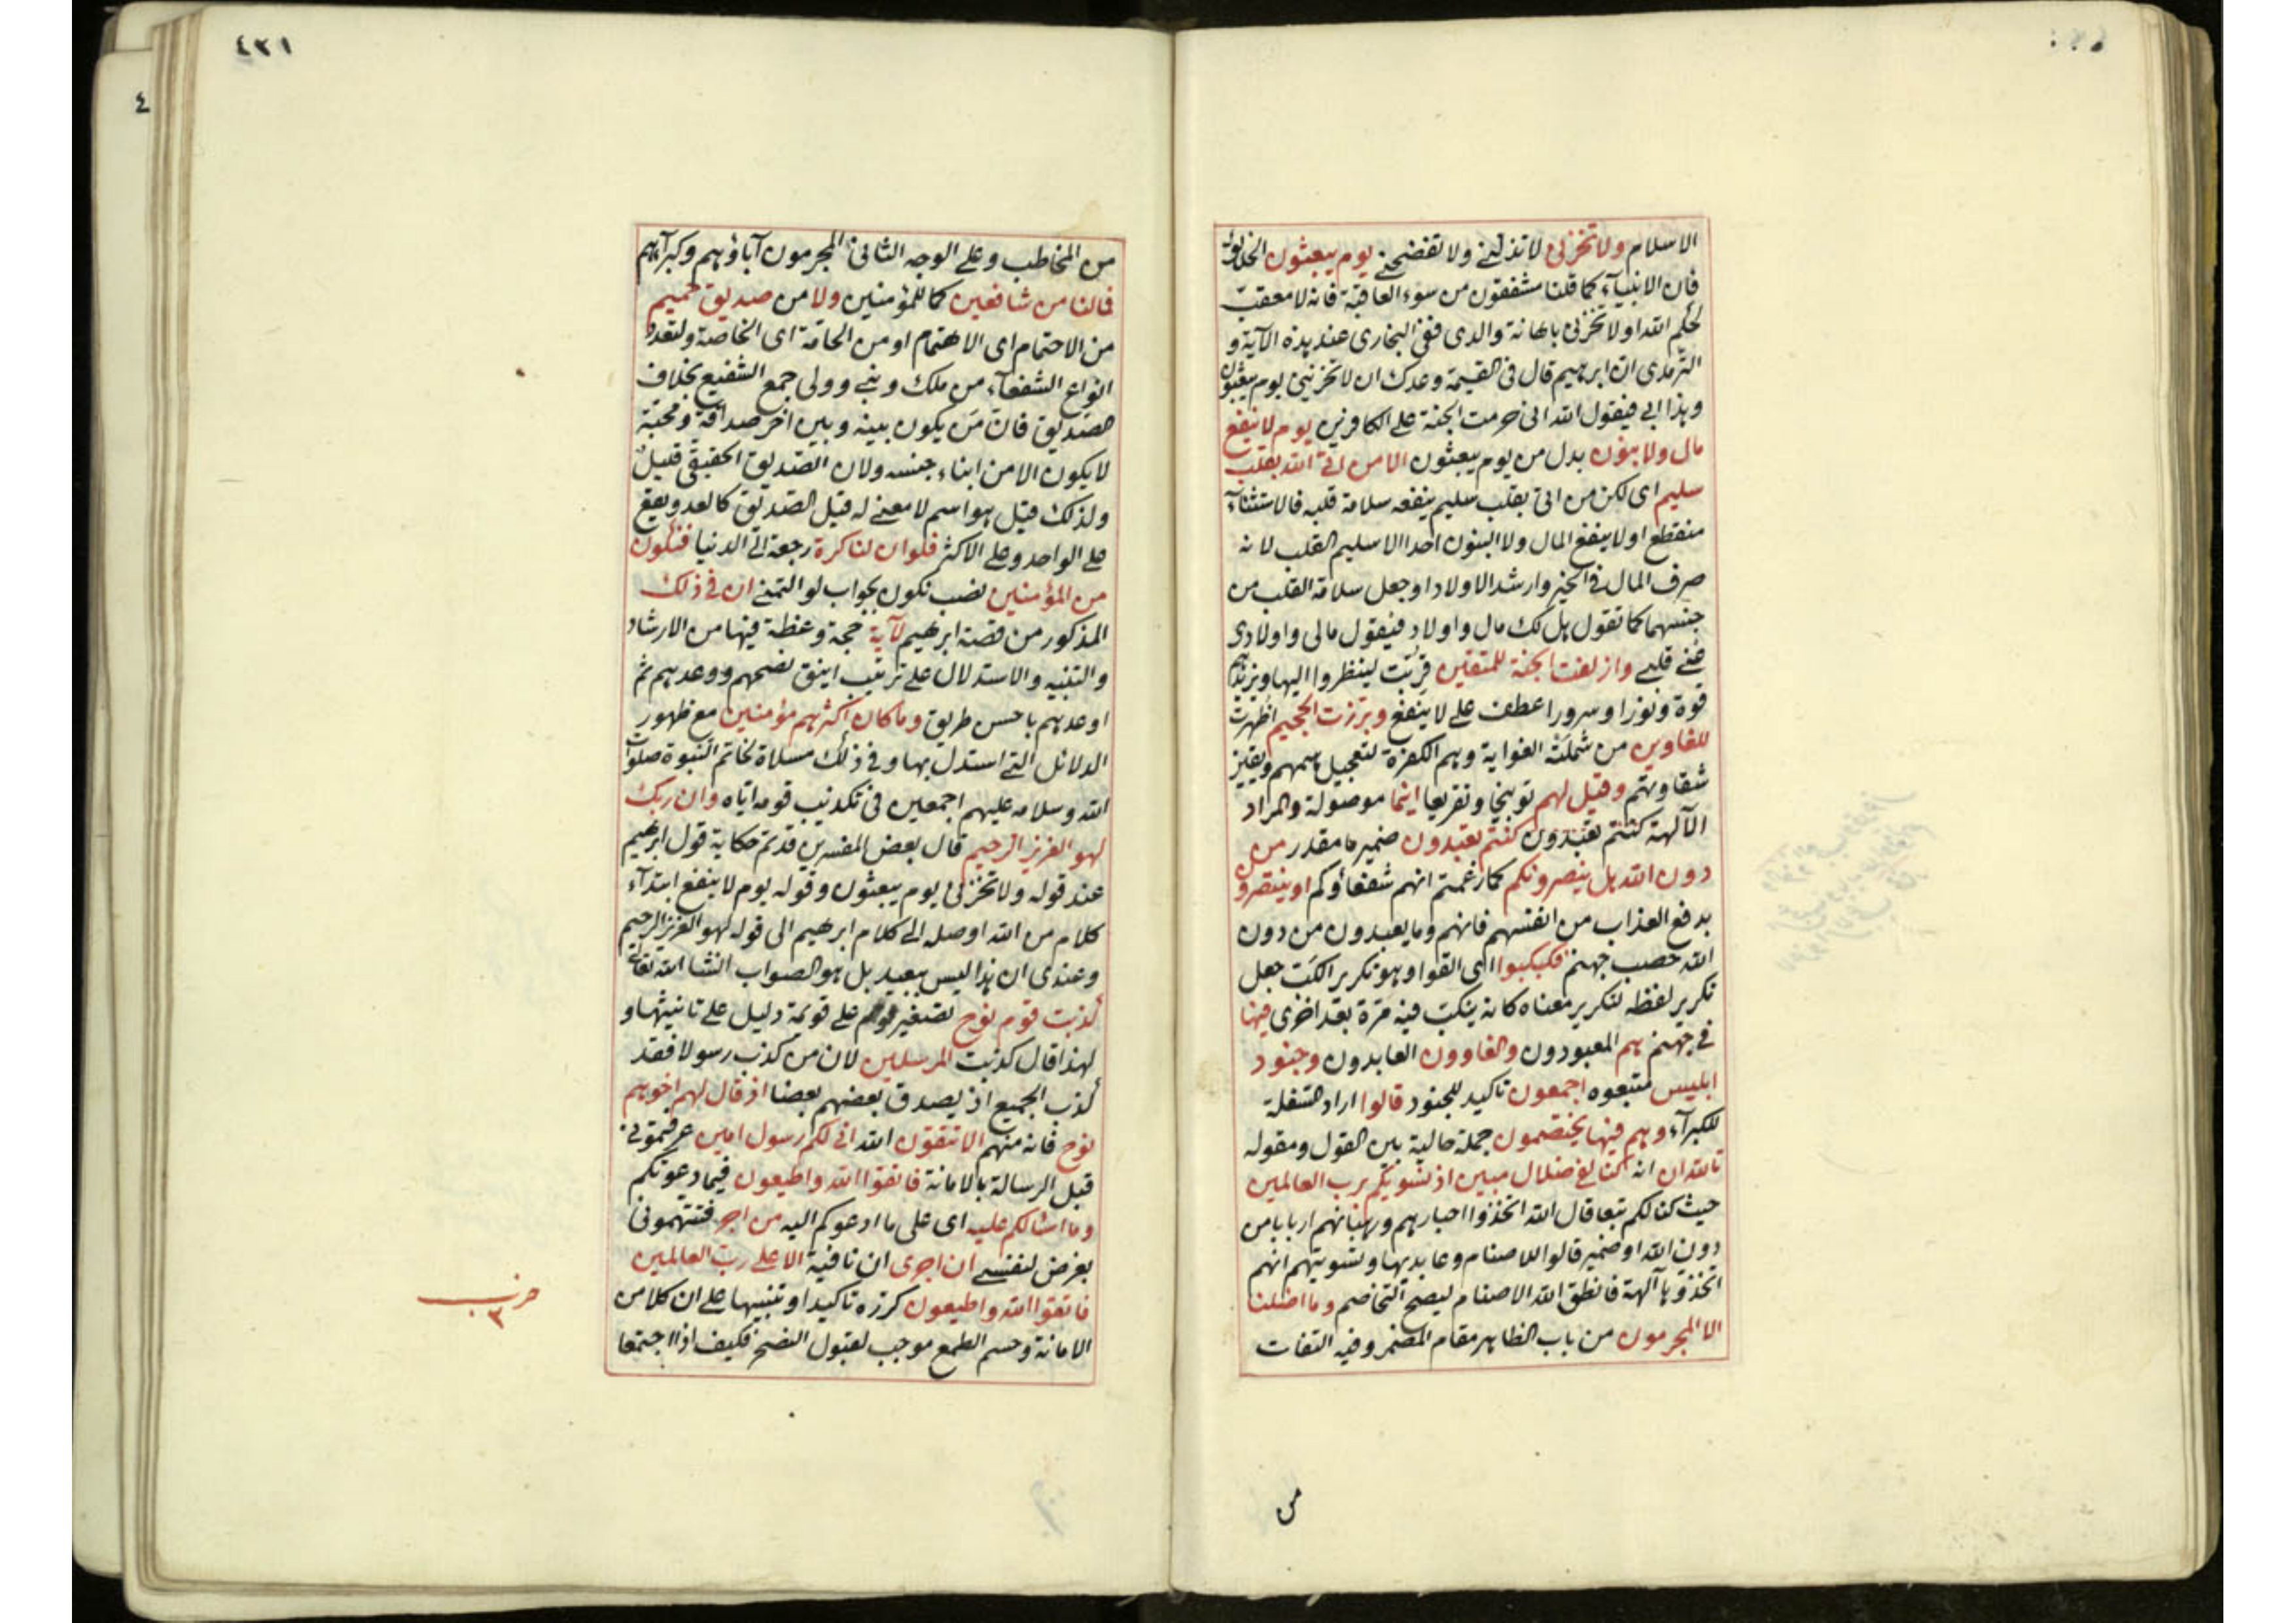 الاسلام ولا تخزنى لا تذلنى ولا تفضحنى يوم يبعثون الخلائق
فان الانبياء كما قلنا مشفقون من سوء العاقبة فانه لا معقب
لحكم الله او لا تخزنى باهانة والدى ففى البخارى عند هذه الآية و
الترمذى ان ابرهيم قال فى القيمة وعدك ان لا تخزينى يوم يبعثون
وهذا ابى فيقول الله انى حرمت الجنة على الكافرين يوم لا ينفع
مال ولا بنون بدل من يوم يبعثون الا من اتى الله بقلب
سليم اى لكن من اتى بقلب سليم ينفعه سلامة قلبه فالاستثناء
منقطع او لا ينفع المال ولا البنون احدا الا سليم القلب لانه
صرف المال فى الخير وارشد الاولاد او جعل سلامة القلب من
جنسهما كما تقول هل لك مال واولاد فيقول مالى واولادى
غنى قلبى وازلفت الجنة للمتقين قربت لينظروا اليها ويزيدهم
قوة ونورا وسرورا عطف على لا ينفع وبرزت الجحيم اظهرت
للغاوين من شملته الغواية وهم الكفرة لتعجيل همهم
شقاوتهم وقيل لهم توبيخا وتقريعا اينما موصولة والمراد
الآلهة كنتم تعبدون كنتم تعبدون ضمير ما مقدر من
دون الله هل ينصرونكم كما زعمتم انهم شفعاؤكم او ينتصرون
بدفع العذاب من انفسهم فانهم وما يعبدون من دون
الله حصب جهنم فكبكبوا اى القوا وهو تكرير الكب جعل
تكرير لفظه لتكرير معناه كانه ينكب فيه مرة بعد اخرى فيها
فى جهنم هم المعبودون والغاوون العابدون وجنود
ابليس متبعوه اجمعون تاكيد للجنود قالوا اراد السفلة
للكبرآء وهم فيها يختصمون جملة حالية بين القول ومقوله
تالله ان انه كنا لفى ضلال مبين اذ نسويكم برب العالمين
حيث كنا لكم تبعا قال الله اتخذوا احبارهم ورهبانهم اربابا من
دون الله او ضمير قالوا للاصنام وعابديها وتسويتهم انهم
اتخذوها آلهة فانطق الله الاصنام ليصح التخاصم وما اضلنا
الا المجرمون من باب الظاهر مقام المضمر وفيه التفات
من
٤٣١
من المخاطب وعلى الوجه الثانى المجرمون آباؤهم وكبرآءهم
فما لنا من شافعين كما للمؤمنين ولا من صديق حميم
من الاحتمام اى الاهتمام او من الحامة اى الخاصة ولتعدد
انواع الشفعاء من ملك ونبى وولى جمع الشفيع بخلاف
الصديق فان من يكون بينه وبين اخر صداقة ومحبة
لا يكون الا من ابناء جنسه ولان الصديق الحقيقى قليل
ولذلك قيل هو اسم لا معنى له قيل الصديق كالعدو يقع
على الواحد وعلى الاكثر فلو ان لنا كرة رجعة الى الدنيا فنكون
من المؤمنين نصب نكون بجواب لو التمنى ان فى ذلك
المذكور من قصة ابرهيم لآية حجة وعظة فيها من الارشاد
والتنبيه والاستدلال على ترتيب انيق نصحهم ووعدهم ثم
اوعدهم باحسن طريق وما كان اكثرهم مؤمنين مع ظهور
الدلائل التى استدل بها وفى ذلك مسلاة لخاتم النبوة صلوات
الله وسلامه عليهم اجمعين فى تكذيب قومه اياه وان ربك
لهو العزيز الرحيم قال بعض المفسرين قد تم حكاية قول ابرهيم
عند قوله ولا تخزنى يوم يبعثون وقوله يوم لا ينفع ابتدآء
كلام من الله اوصله الى كلام ابرهيم الى قوله لهو العزيز الرحيم
وعندى ان هذا ليس ببعيد بل هو الصواب انشا الله تعالى
كذبت قوم نوح تصغير قوم على قويمة دليل على تانيثها و
لهذا قال كذبت المرسلين لان من كذب رسولا فقد
كذب الجميع اذ يصدق بعضهم بعضا اذ قال لهم اخوهم
نوح فانه منهم الا تتقون الله انى لكم رسول امين عرفتمونى
قبل الرسالة بالامانة فاتقوا الله واطيعون فيما دعوتكم
وما اسالكم عليه اى على ما ادعوكم اليه من اجر فتتهمونى
بغرض لنفسى ان اجرى ان نافية الا على رب العالمين
فاتقوا الله واطيعون كرره تاكيدا وتنبيها على ان كلا من
الامانة وحسم الطمع موجب لقبول النصح فكيف اذا اجتمعا
حزب
٣
٤